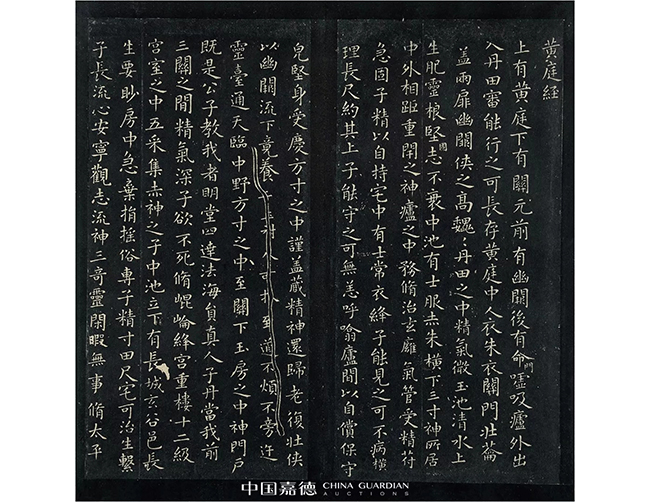 黄庭経
上有黄庭下有關元前有幽闕後有命門噓吸廬外出
入丹田審能行之可長存黄庭中人衣朱衣關門壮蘥
盖兩扉幽闕侠之髙魏:丹田之中精氣微玉池清水上
生肥靈根堅固志不衰中池有士服赤朱横下三寸神所居
中外相距重閇之神廬之中務脩治玄廱氣管受精苻
急固子精以自持宅中有士常衣絳子能見之可不病横
理長尺約其上子能守之可無恙呼噏廬間以自償保守
皃堅身受慶方寸之中謹盖藏精神還歸老復壮侠
以幽闕流下竟養 不煩不旁迕
靈臺通天臨中野方寸之中至闕下玉房之中神門户
既是公子教我者明堂四達法海負真人子丹當我前
三關之閒精氣深子欲不死脩崐崘絳宫重樓十二級
宫室之中五采集赤神之子中池立下有長城玄谷邑長
生要眇房中急棄捐揺俗專子精寸田尺宅可治生繫
子長流心安寧觀志流神三奇靈閑暇無事脩太平
中国嘉德 CHINA GUARDIAN
AUCTIONS